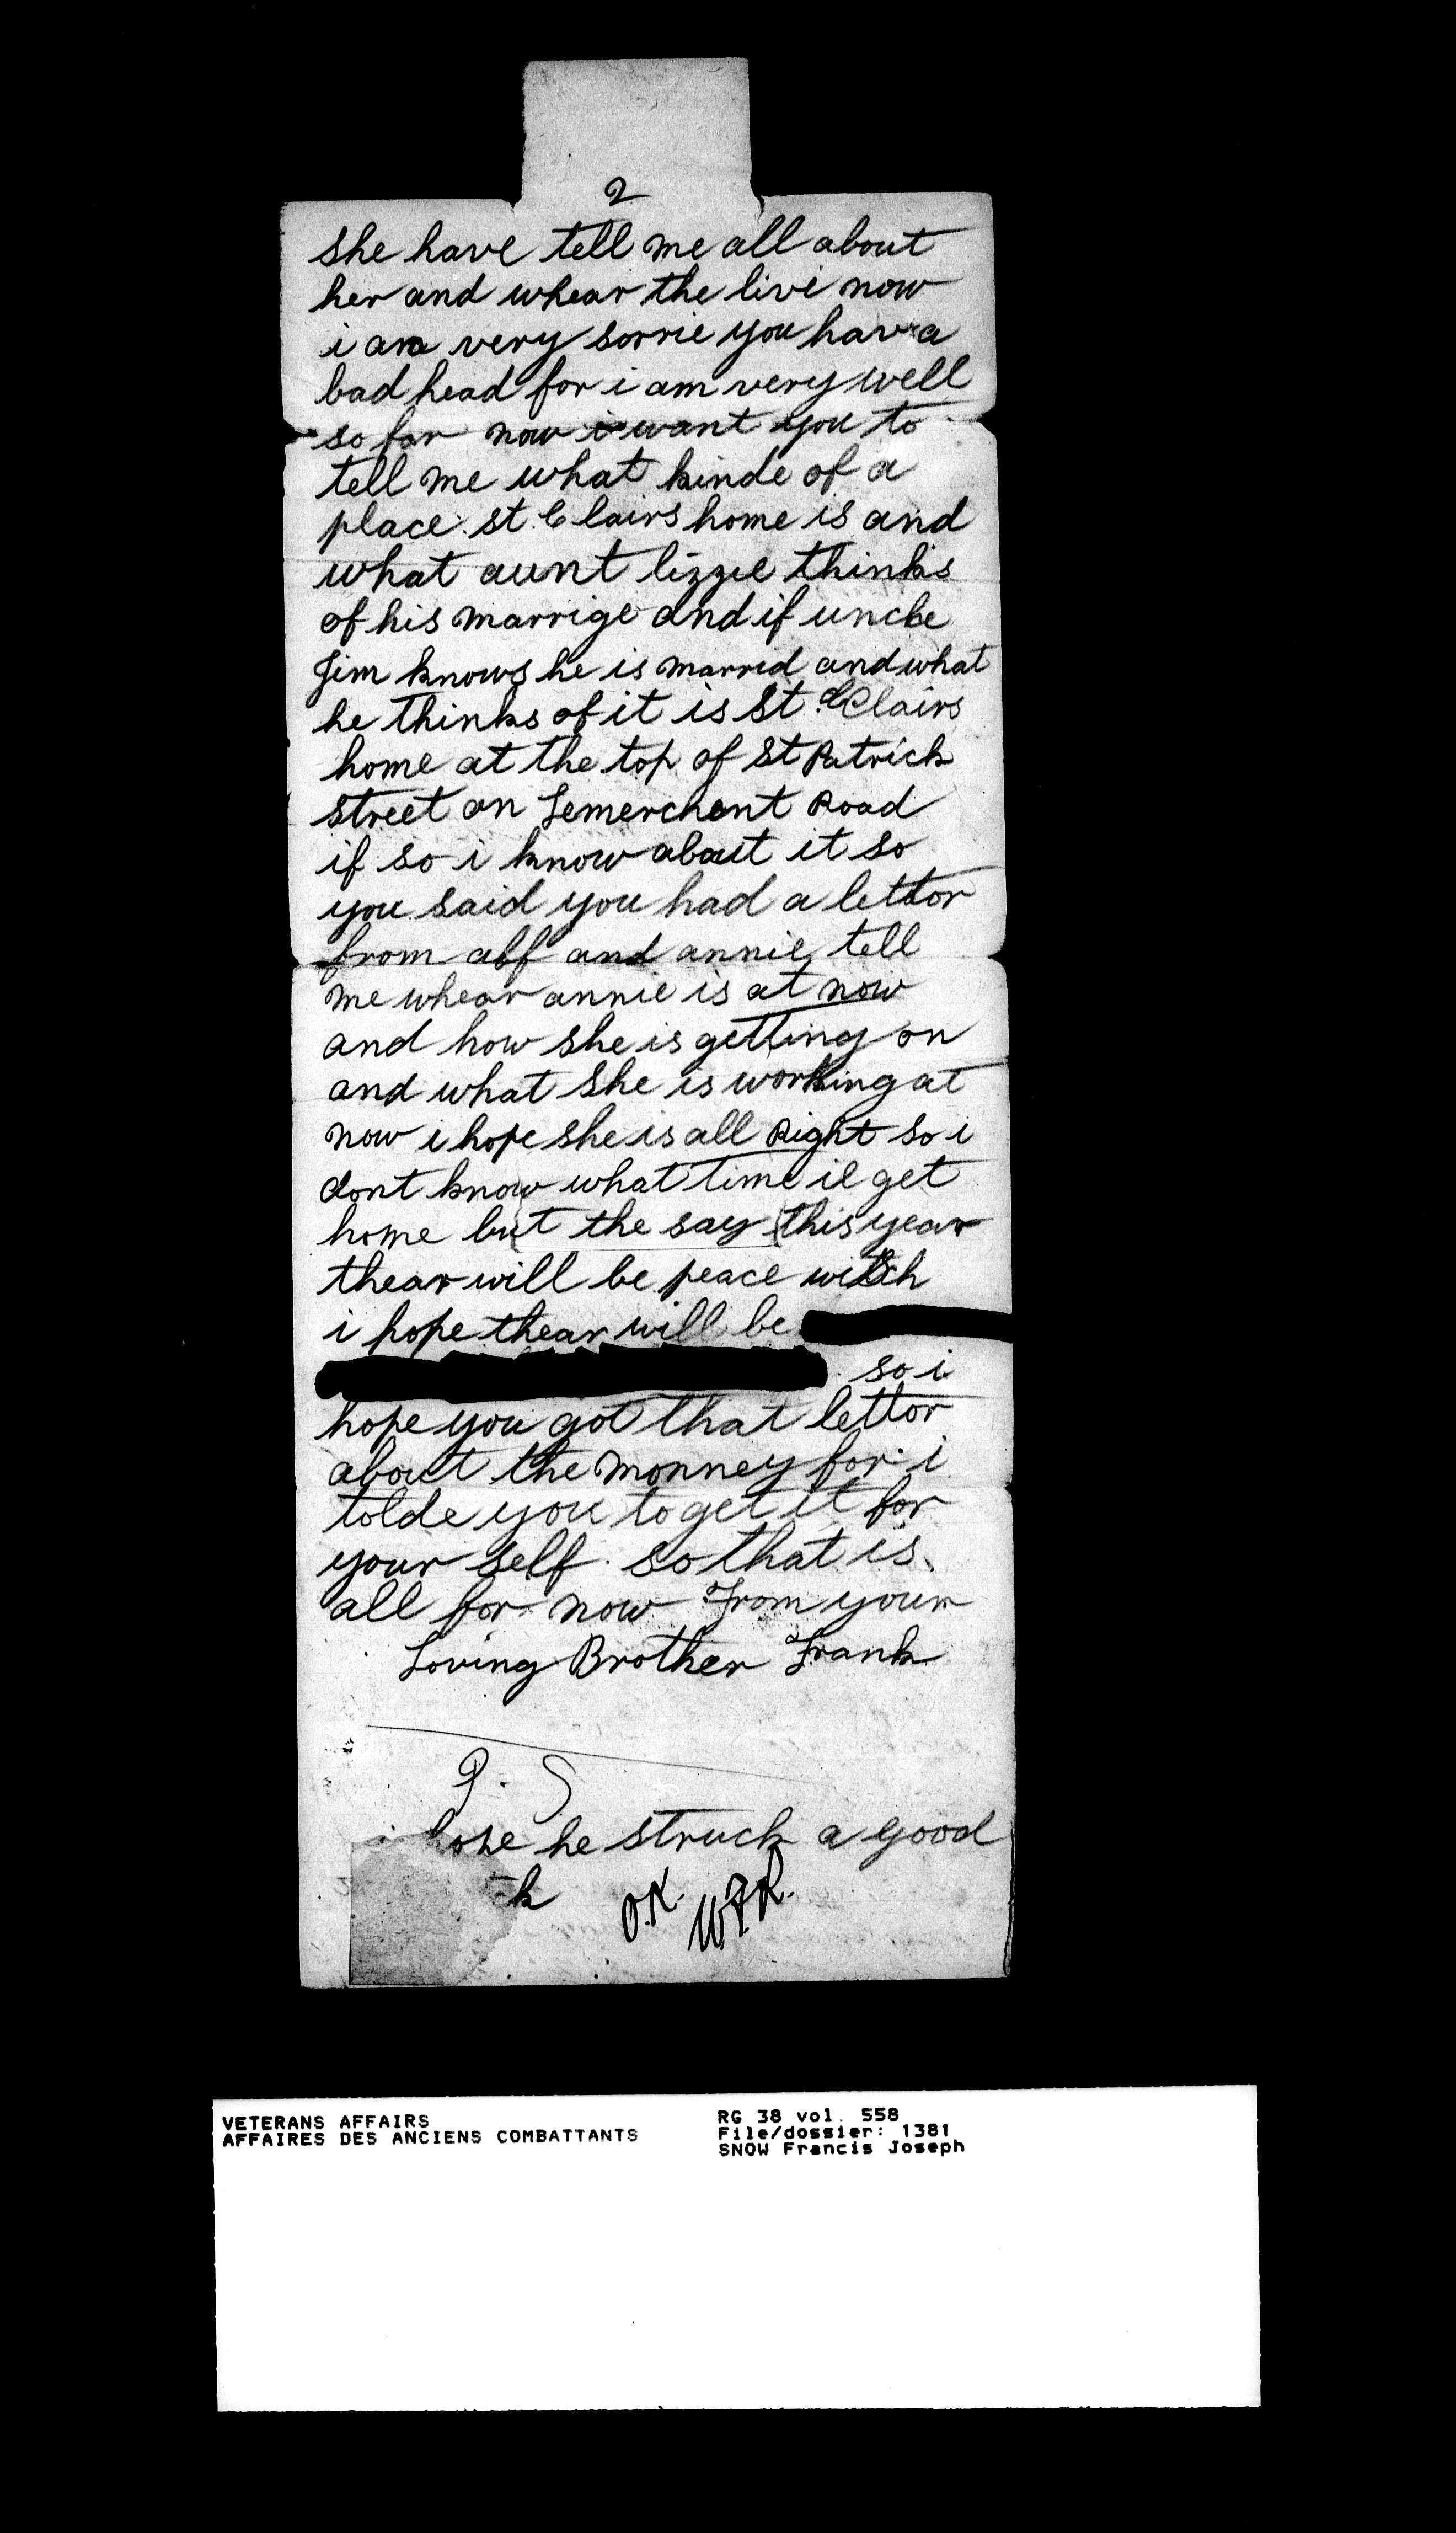 2
she have tell me all about
her and whear the live now
i am very sorrie you have a
bad head for i am very well
so far now i want you to
tell me what kinde of a
place. st. Clairs home is and
what aunt lizzie thinks
of his marrige and if uncle
Jim knows he is marrid and what
he thinks of it is St. Clairs
home at the top of St Patrick
street on Lemerchent Road
if so i know about it so
you said you had a lettor
from alf and annie, tell
me whear annie is at now
and how she is getting on
and what she is working at
now i hope she is all Right so i
dont know what time il get
home but the say this year
thear will be peace witch
i hope thear will be
so i
hope you got that lettor
about the monney for i
tolde you to get it for
your self. so that is
all for now From your
Loving Brother Frank
P. S
i hope he struck a good
O.K.
VETERANS AFFAIRS
AFFAIRES DES ANCIENS COMBATTANTS
RG 38 vol. 558
File/dossier: 1381
SNOW Francis Joseph